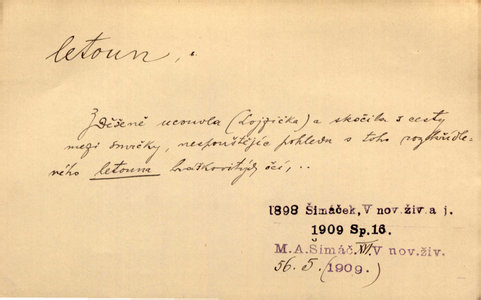 letoun,
Zděšeně ucouvla (Lojzička) a skočila s cesty
mezi smrčky, nespouštějíc pohledu s toho rozkřídle-
ného letouna očí, ..
1898 Šimáček, V nov.živ.a j.
1909 Sp.16.
M.A.Šimáč. V nov.živ.
56.5. (1909.)